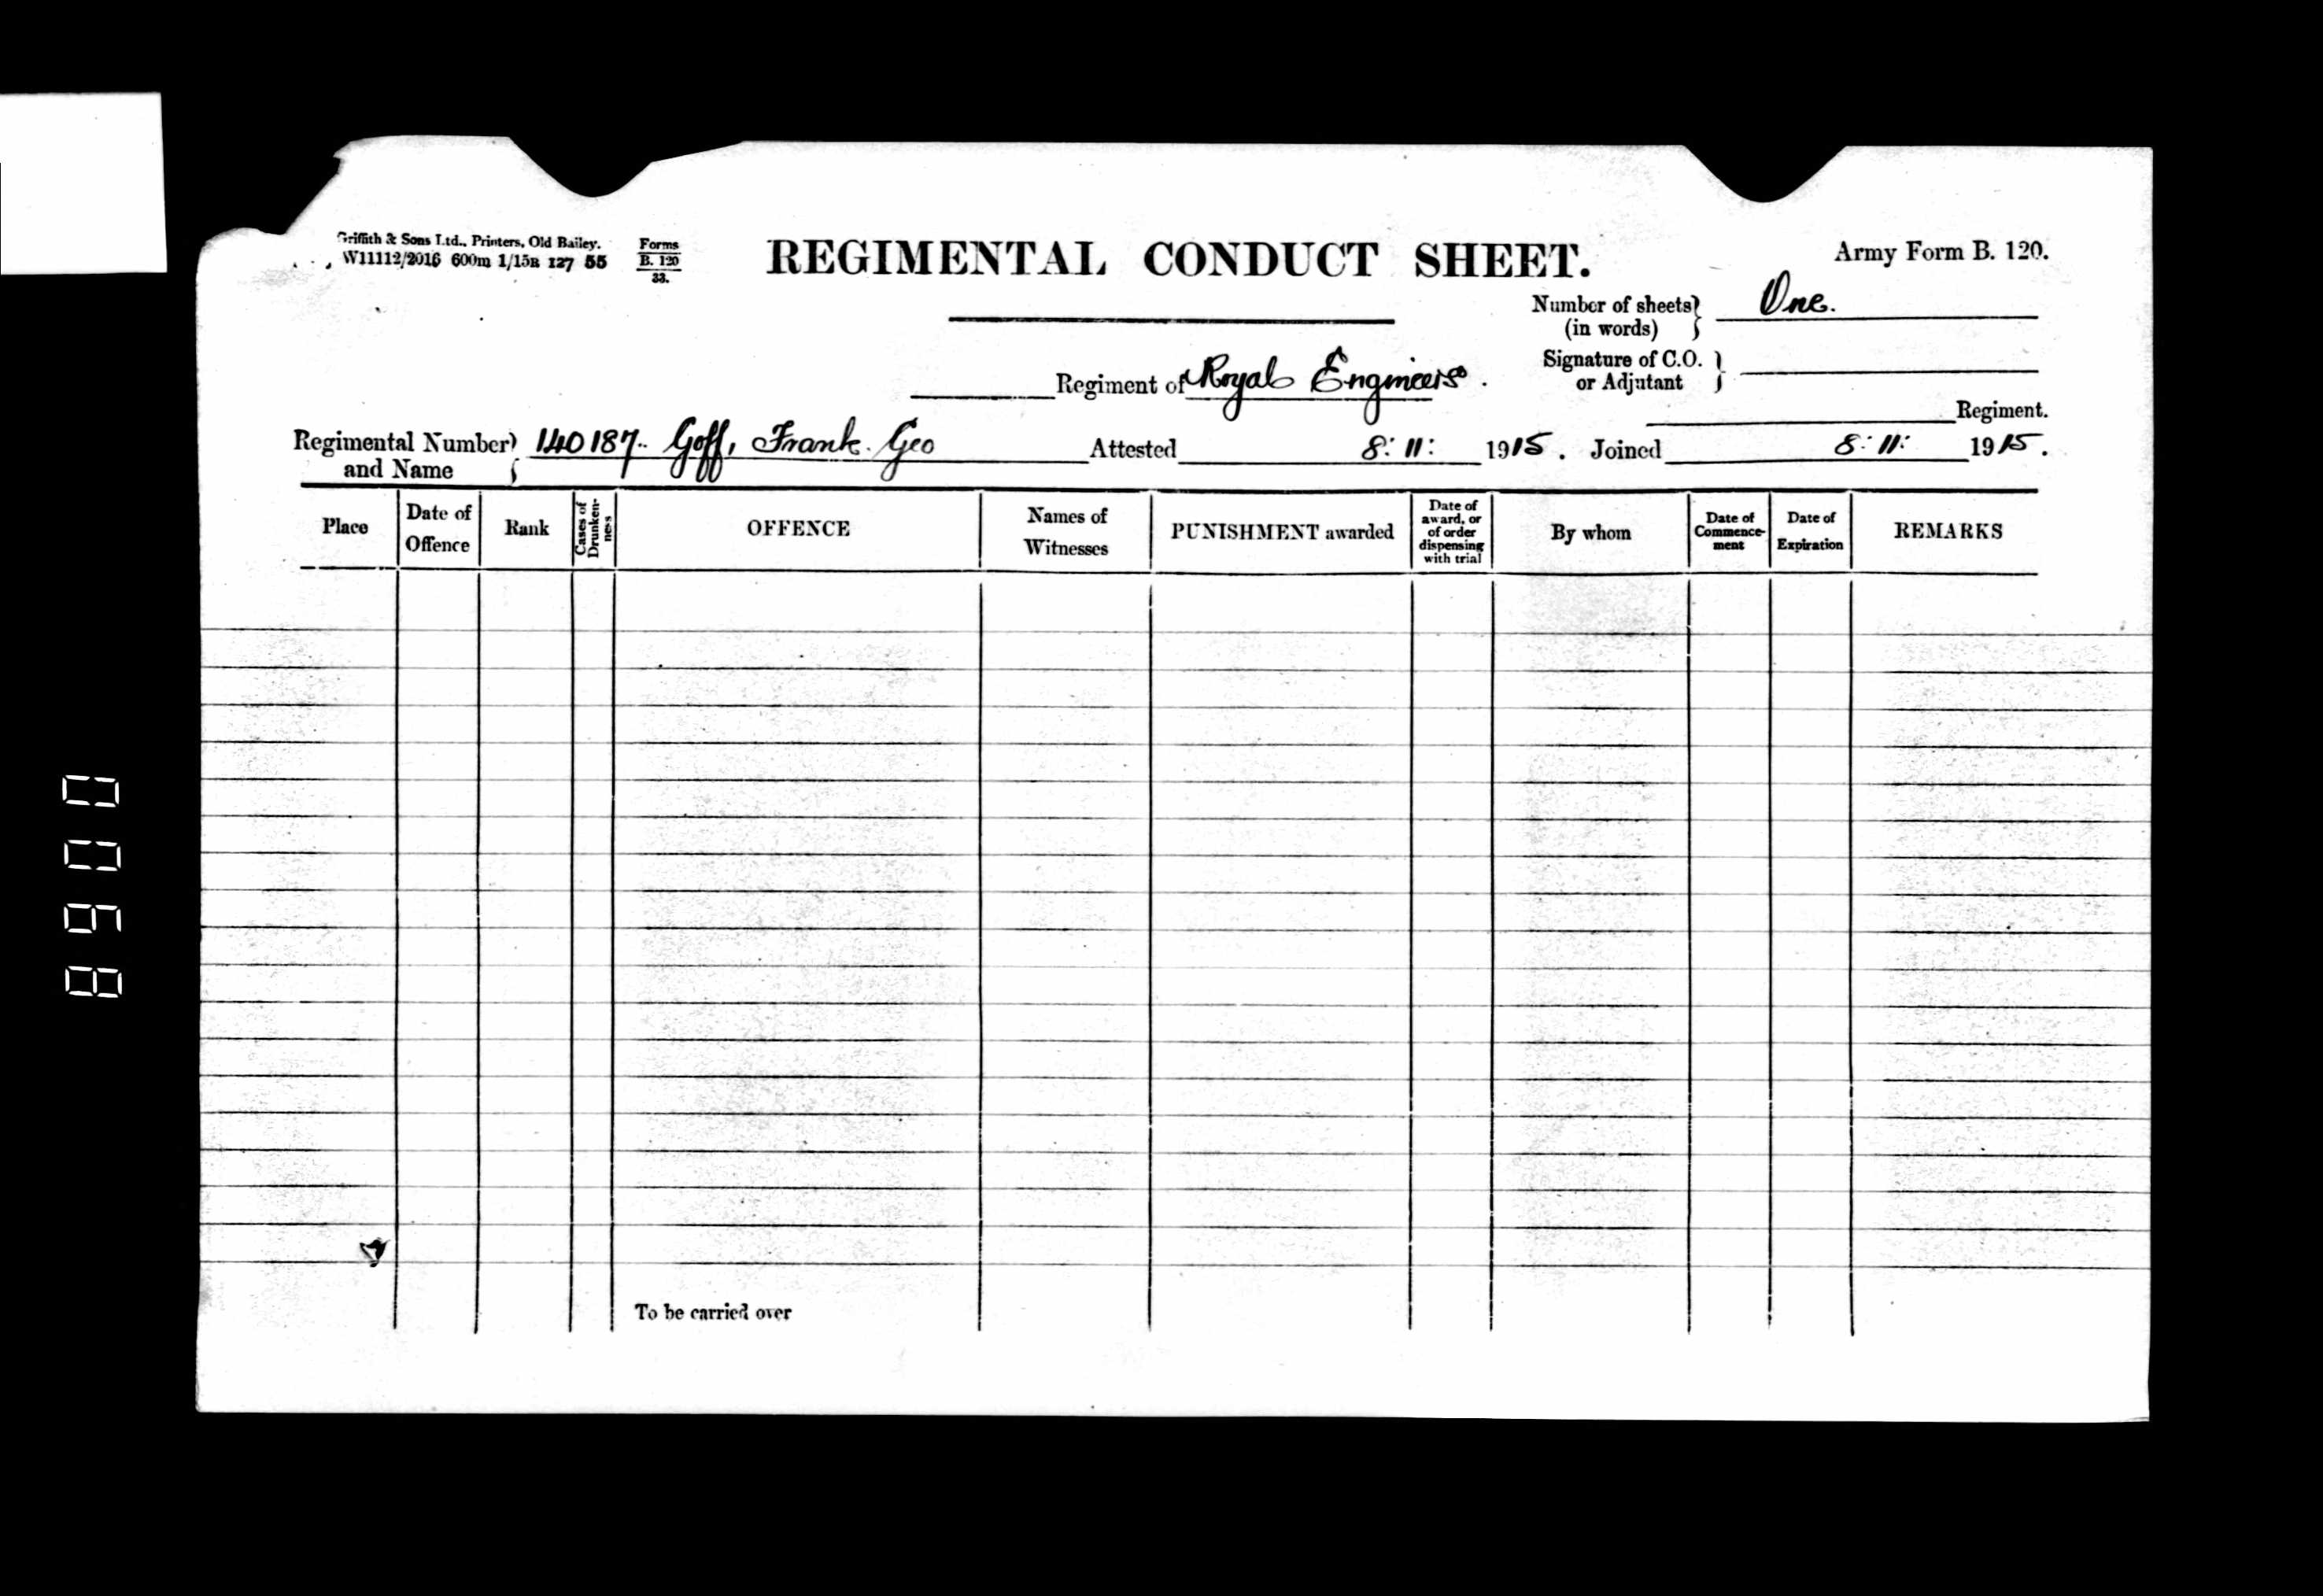 Griffith & Sons Ltd., Printers, Old Bailey.
W11112/2016 600m 1/15B 127 55
Forms
B. 120
33.
REGIMENTAL CONDUCT SHEET.
Army Form B. 120.
Number of sheets (in words) One.
Signature of C.O. or Adjutant
Regiment of Royal Engineers.
Regiment.
Regimental Number and Name 140187. Goff, Frank. Geo Attested 8: 11: 1915. Joined 8: 11: 1915.
Place
Date of Offence
Rank
Cases of Drunken-ness
OFFENCE
Names of Witnesses
PUNISHMENT awarded
Date of award, or of order dispensing with trial
By whom
Date of Commence-ment
Date of Expiration
REMARKS
To be carried over